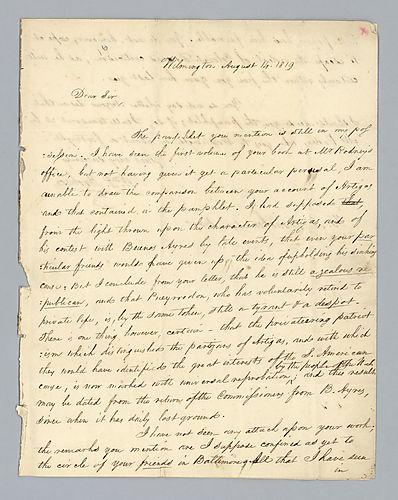 Wilmington August 14. 1819
Dear Sir
The pamphlet you mention is still in my pos
session. I have seen the first volume of your book at Mr Rodney's
office, but not having given it yet a particular perusal, I am
unable to draw the comparison between your account of Artigas
and that contained in the pamphlet. I had supposed that,
from the light thrown upon the character of Artigas, and of
his contest with Buenos Ayres by late events, that even your par
:ticular friends would have given up the idea of upholding his sinking
cause. But I conclude from your letter, that he is still a zealous re
:publican, and that Pueyrredon, who has voluntarily retired to
private life, is, by the same token, still a tyrant & a despot.
There is one thing however, certain - that the privateering patriot
:ism which distinguishes the partizans of Artigas, and with which
they would have identified the great interests of the S. American
by the people of the U.S.
cause, is now marked with universal reprobation, and this result
may be dated from the return of the Commissioners from B. Ayres,
since when it has daily lost ground.
I have not seen any attack upon your work,
the remarks you mention are I suppose confined as yet to
the circle of your friends in Baltimore. All that I have seen
in